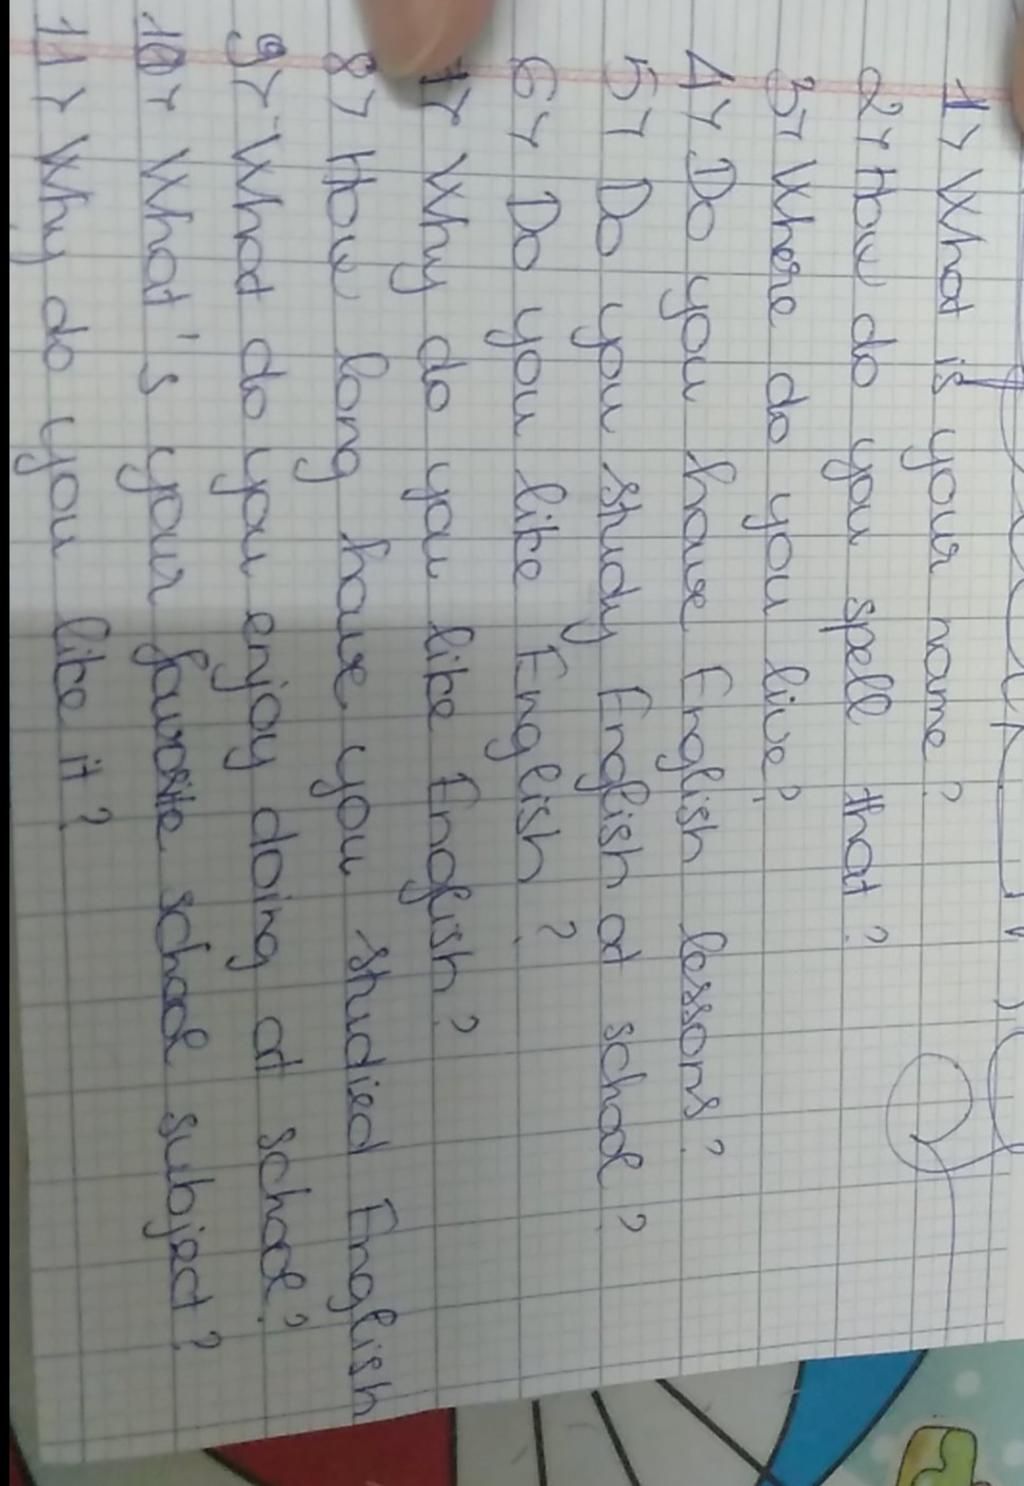 1) What is your name?
2) How do you spell that?
3) Where do you live?
4) Do you have English lessons?
5) Do you study English at school?
6) Do you like English?
7) Why do you like English?
8) How long have you studied English
9) What do you enjoy doing at school?
10) What's your favorite school subject?
11) Why do you like it?